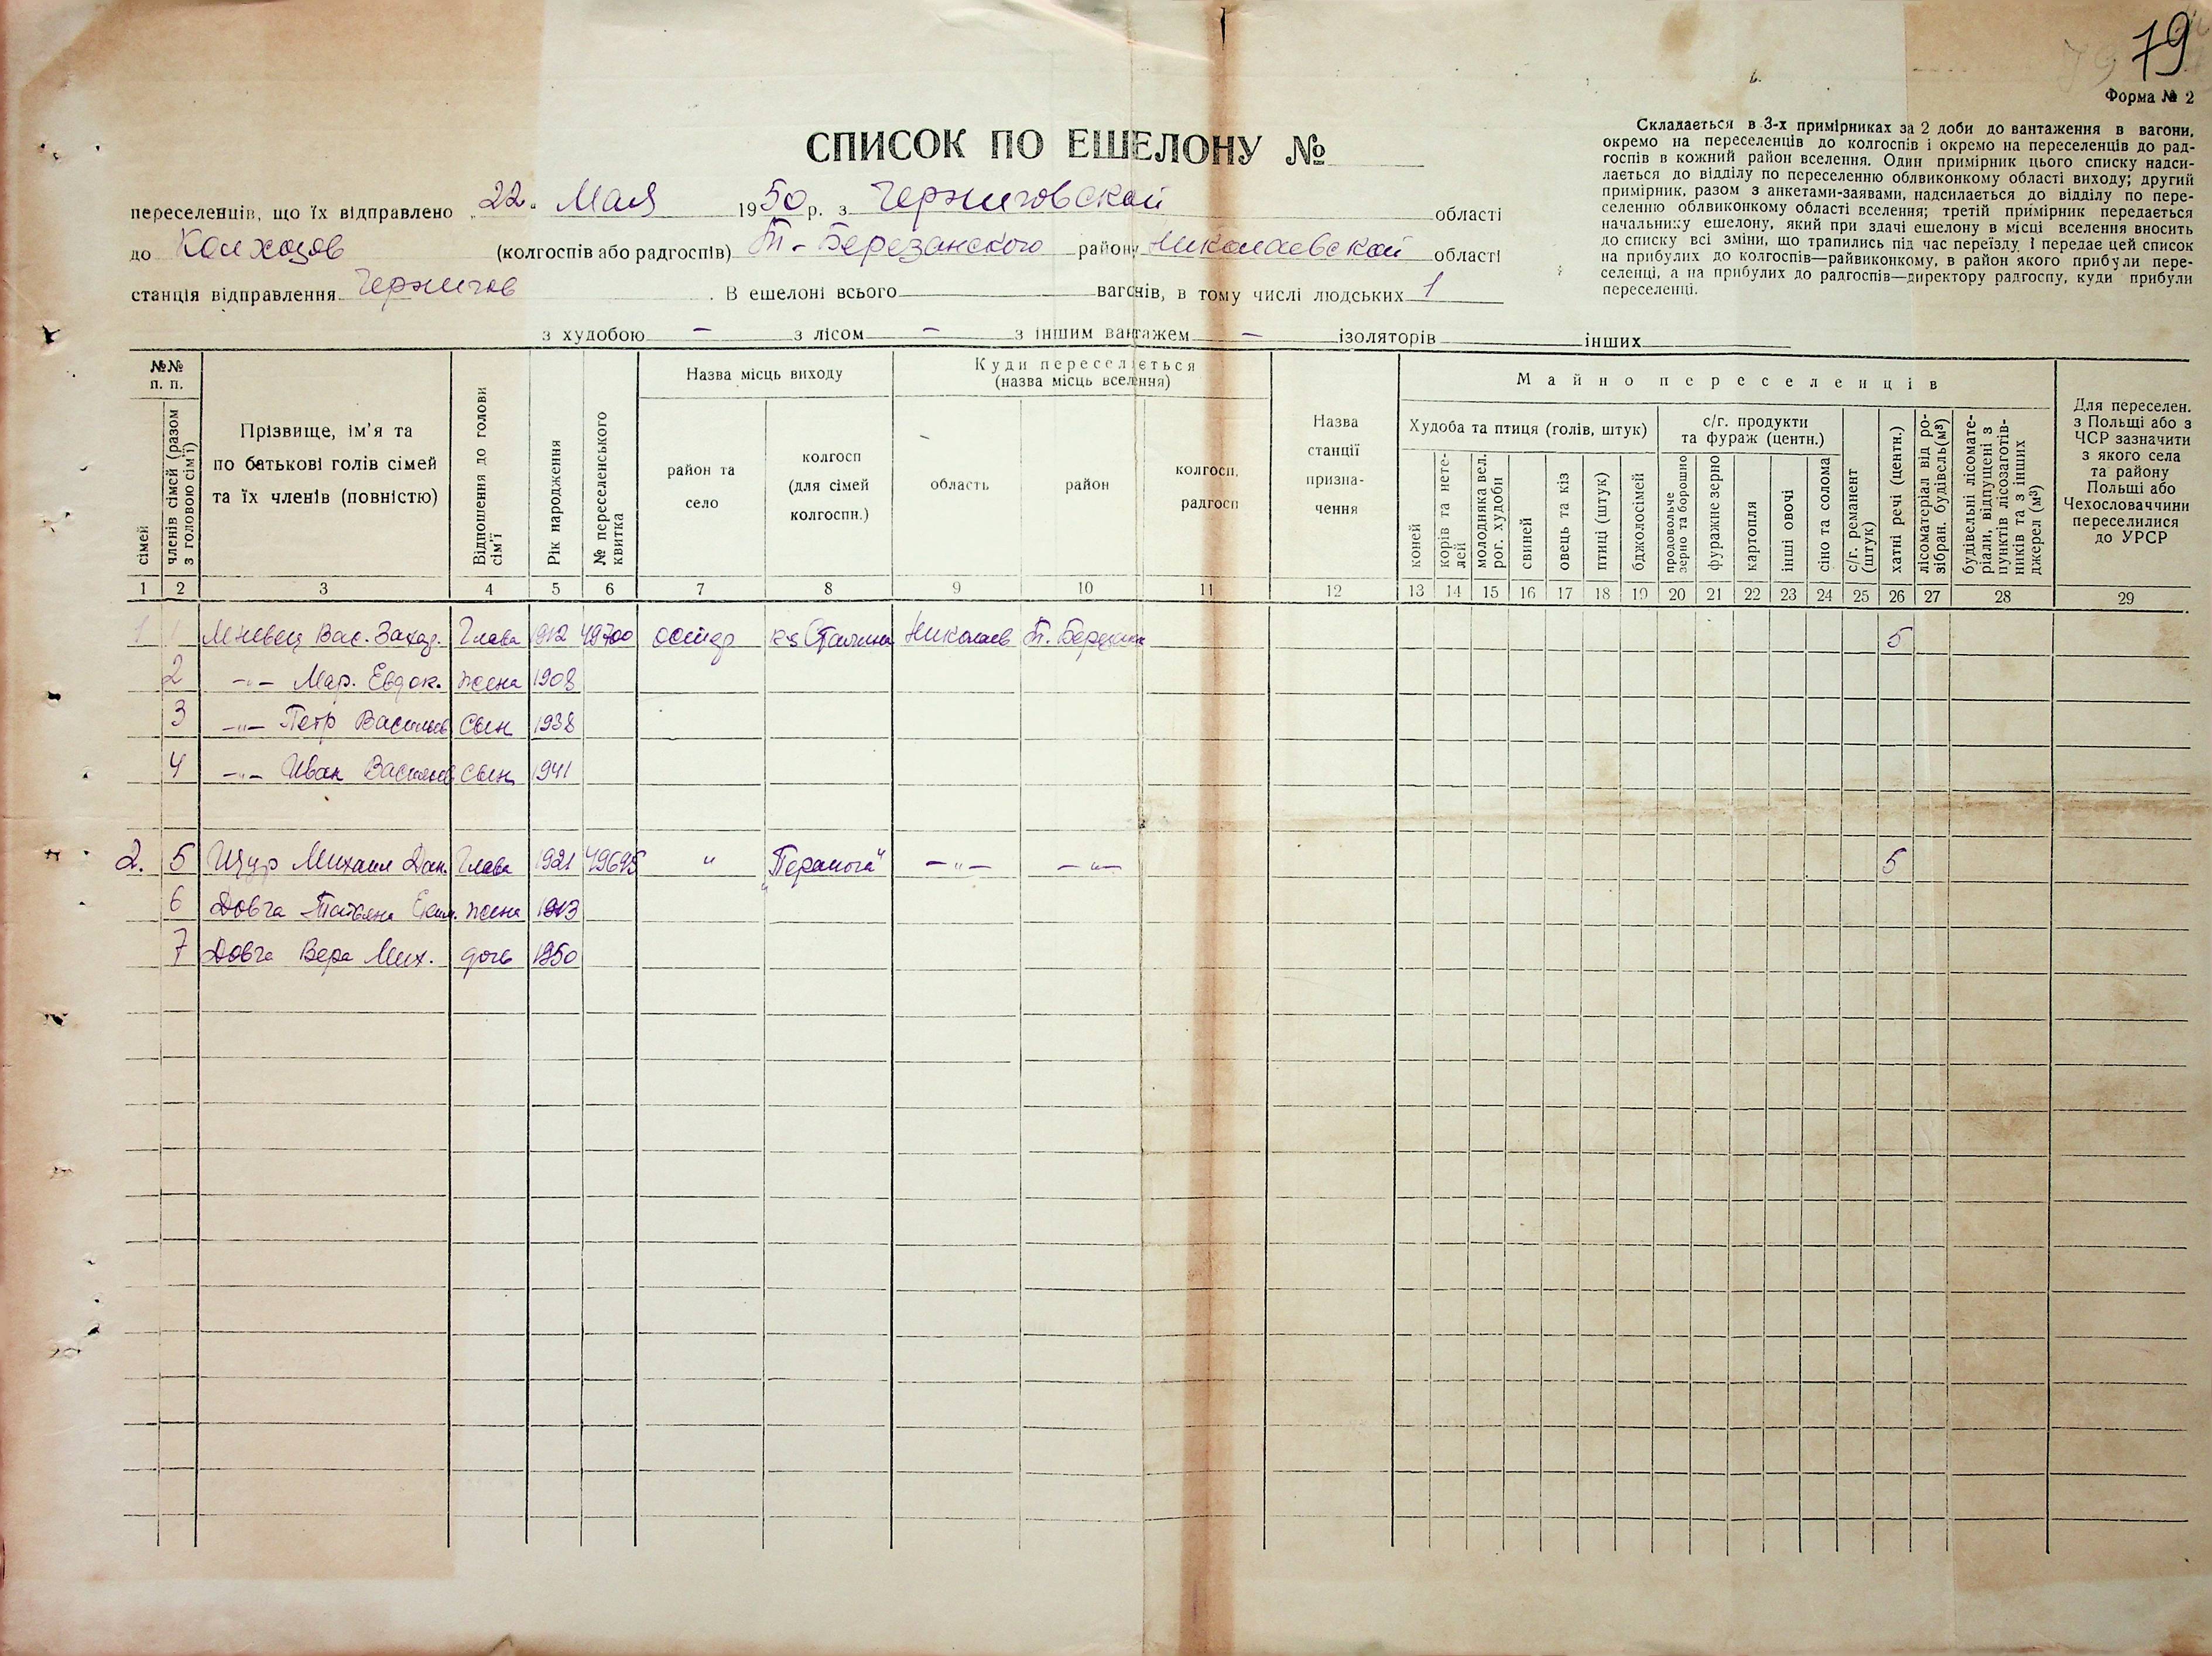 79
Форма № 2
СПИСОК ПО ЕШЕЛОНУ №
переселенців, що їх відправлено 22. Мая 1950 р. з Черниговской області
до Колхозов (колгоспів або радгоспів) Т-Березанского району Николаевской області
станція відправлення Чернигов. В ешелоні всього вагонів, в тому числі людських 1
з худобою - з лісом - з іншим вантажем - ізоляторів інших
Складається в 3-х примірниках за 2 доби до вантаження в вагони,
окремо на переселенців до колгоспів і окремо на переселенців до рад-
госпів в кожний район вселення. Один примірник цього списку надси-
лається до відділу по переселенню облвиконкому області виходу; другий
примірник, разом з анкетами-заявами, надсилається до відділу по пере-
селенню облвиконкому області вселення; третій примірник передається
начальнику ешелону, який при здачі ешелону в місці вселення вносить
до списку всі зміни, що трапились під час переїзду і передає цей список
на прибулих до колгоспів—райвиконкому, в район якого прибули пере-
селенці, а на прибулих до радгоспів—директору радгоспу, куди прибули
переселенці.
№№ п. п.
сімей
членів сімей (разом з головою сім'ї)
Прізвище, ім'я та
по батькові голів сімей
та їх членів (повністю)
Відношення до голови сім'ї
Рік народження
№ переселенського квитка
Назва місць виходу
район та село
колгосп (для сімей колгоспн.)
Куди переселяється
(назва місць вселення)
область
район
колгосп, радгосп
Назва станції призна-чення
Майно переселенців
Худоба та птиця (голів, штук)
коней
корів та нете-лей
молодняка вел. рог. худоби
свиней
овець та кіз
птиці (штук)
бджолосімей
с/г. продукти та фураж (центн.)
продовольче зерно та борошно
фуражне зерно
картопля
інші овочі
сіно та солома
с/г. реманент (штук)
хатні речі (центн.)
лісоматеріал від ро-зібран. будівель(м³)
будівельні лісомате-ріали, відпущені з пунктів лісозаготів-ників та з інших джерел (м³)
Для переселен.
з Польщі або з
ЧСР зазначити
з якого села
та району
Польщі або
Чехословаччини
переселилися
до УРСР
1 2 3 4 5 6 7 8 9 10 11 12 13 14 15 16 17 18 19 20 21 22 23 24 25 26 27 28 29
1 1 Вас. Захар. Глава 1912 49700 остер к-з Сталина Николаев Т. Березанк 5
2 -"- Мар. Евдок. жена 1908
3 -"- Петр Васильев сын 1938
4 -"- Иван Васильев сын 1941
2. 5 Щур Михаил Дан. Глава 1921 49695 " "Перемога" -"- -"- 5
6 Довга Татьяна жена 1913
7 Довга Вера Мих. дочь 1950